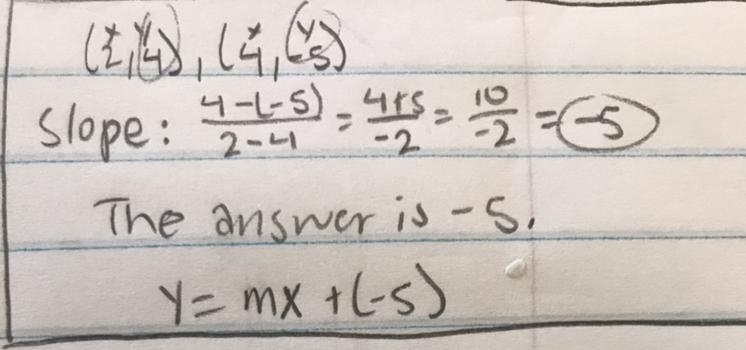 x y x y
(2,4), (4,-5)
Slope: 4-(-5)/2-4 = 4+5/-2 = 10/-2 = -5
The answer is -5.
y = mx + (-5)